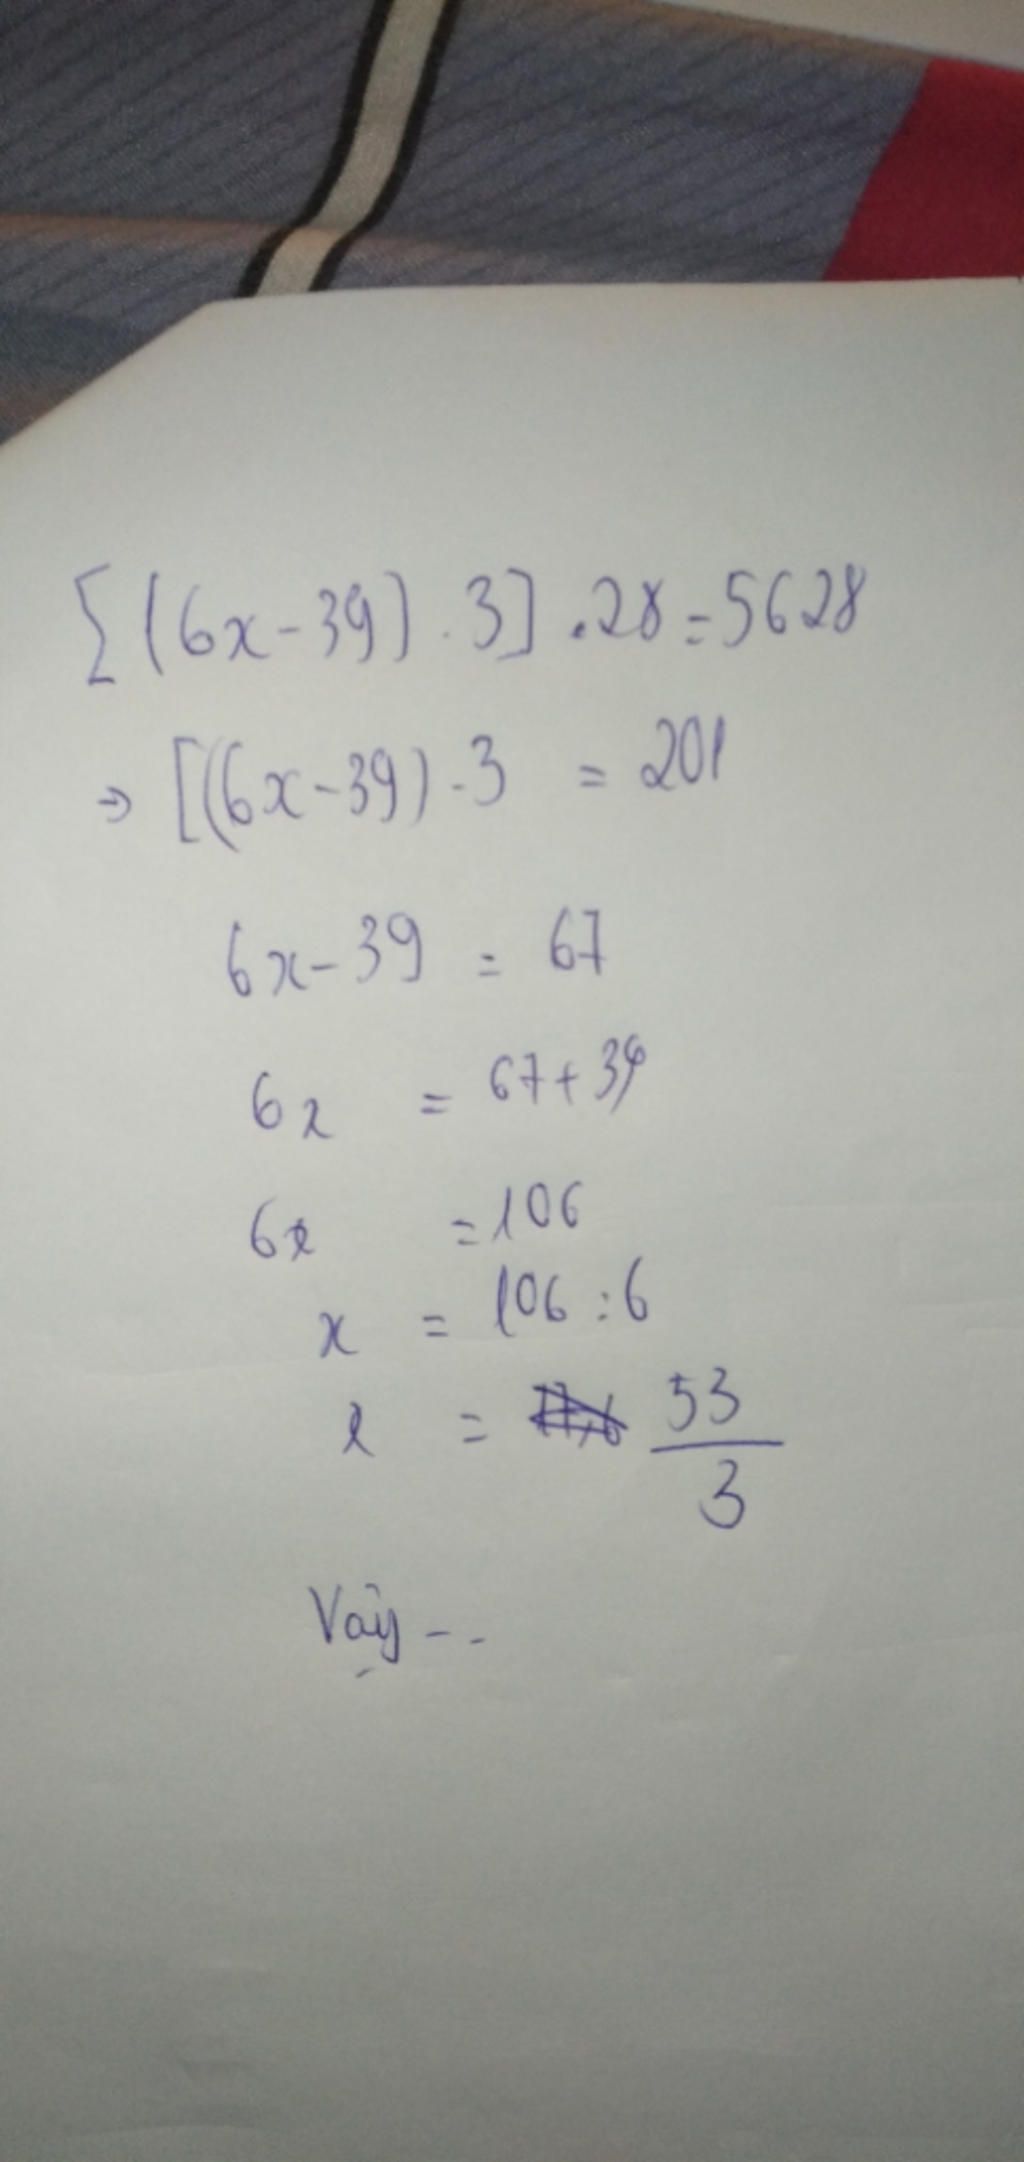 [(6x-39).3].28=5628
⇒ [(6x-39).3 = 201
6x-39 = 67
6x = 67+39
6x = 106
x = 106:6
x = 53/3
Vậy --